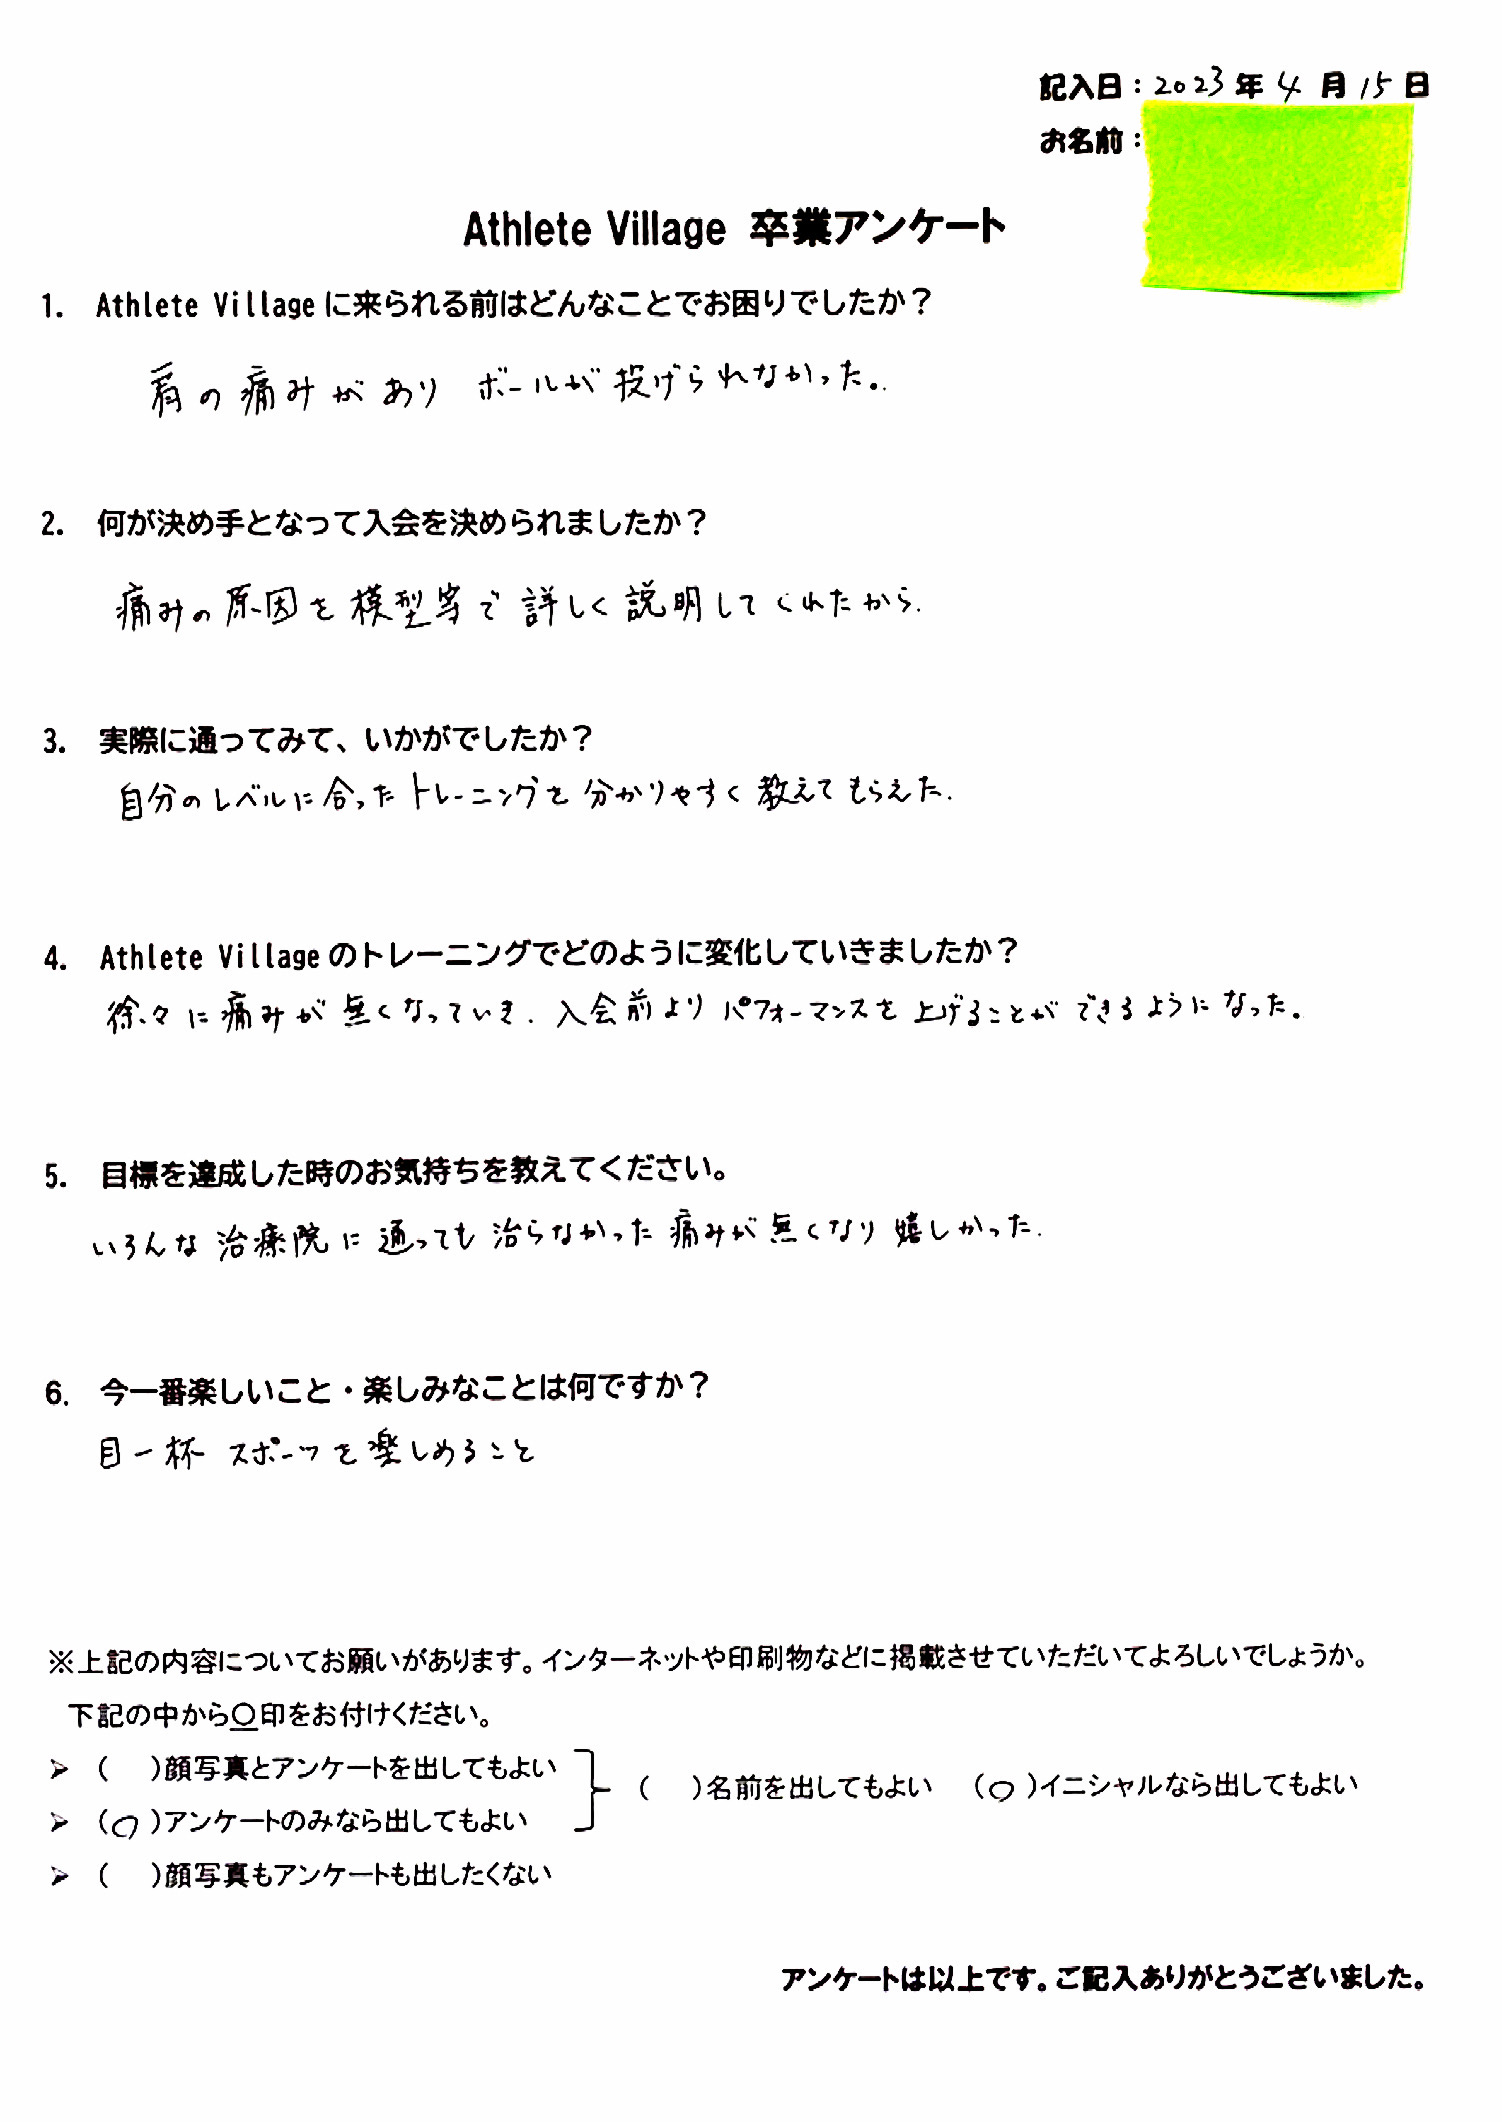 記入日：2023年4月15日
お名前：
Athlete Village 卒業アンケート
1. Athlete Villageに来られる前はどんなことでお困りでしたか？
肩の痛みがあり ボールが投げられなかった。
2. 何が決め手となって入会を決められましたか？
痛みの原因を模型等で詳しく説明してくれたから.
3. 実際に通ってみて、いかがでしたか？
自分のレベルに合ったトレーニングを分かりやすく教えてもらえた.
4. Athlete Villageのトレーニングでどのように変化していきましたか？
徐々に痛みが無くなっていき. 入会前よりパフォーマンスを上げることができるようになった.
5. 目標を達成した時のお気持ちを教えてください。
いろんな治療院に通っても治らなかった痛みが無くなり嬉しかった.
6. 今一番楽しいこと・楽しみなことは何ですか？
目一杯スポーツを楽しめること
※上記の内容についてお願いがあります。インターネットや印刷物などに掲載させていただいてよろしいでしょうか。
下記の中から○印をお付けください。
➢ ( )顔写真とアンケートを出してもよい
➢ (○)アンケートのみなら出してもよい
( )名前を出してもよい (○)イニシャルなら出してもよい
➢ ( )顔写真もアンケートも出したくない
アンケートは以上です。ご記入ありがとうございました。